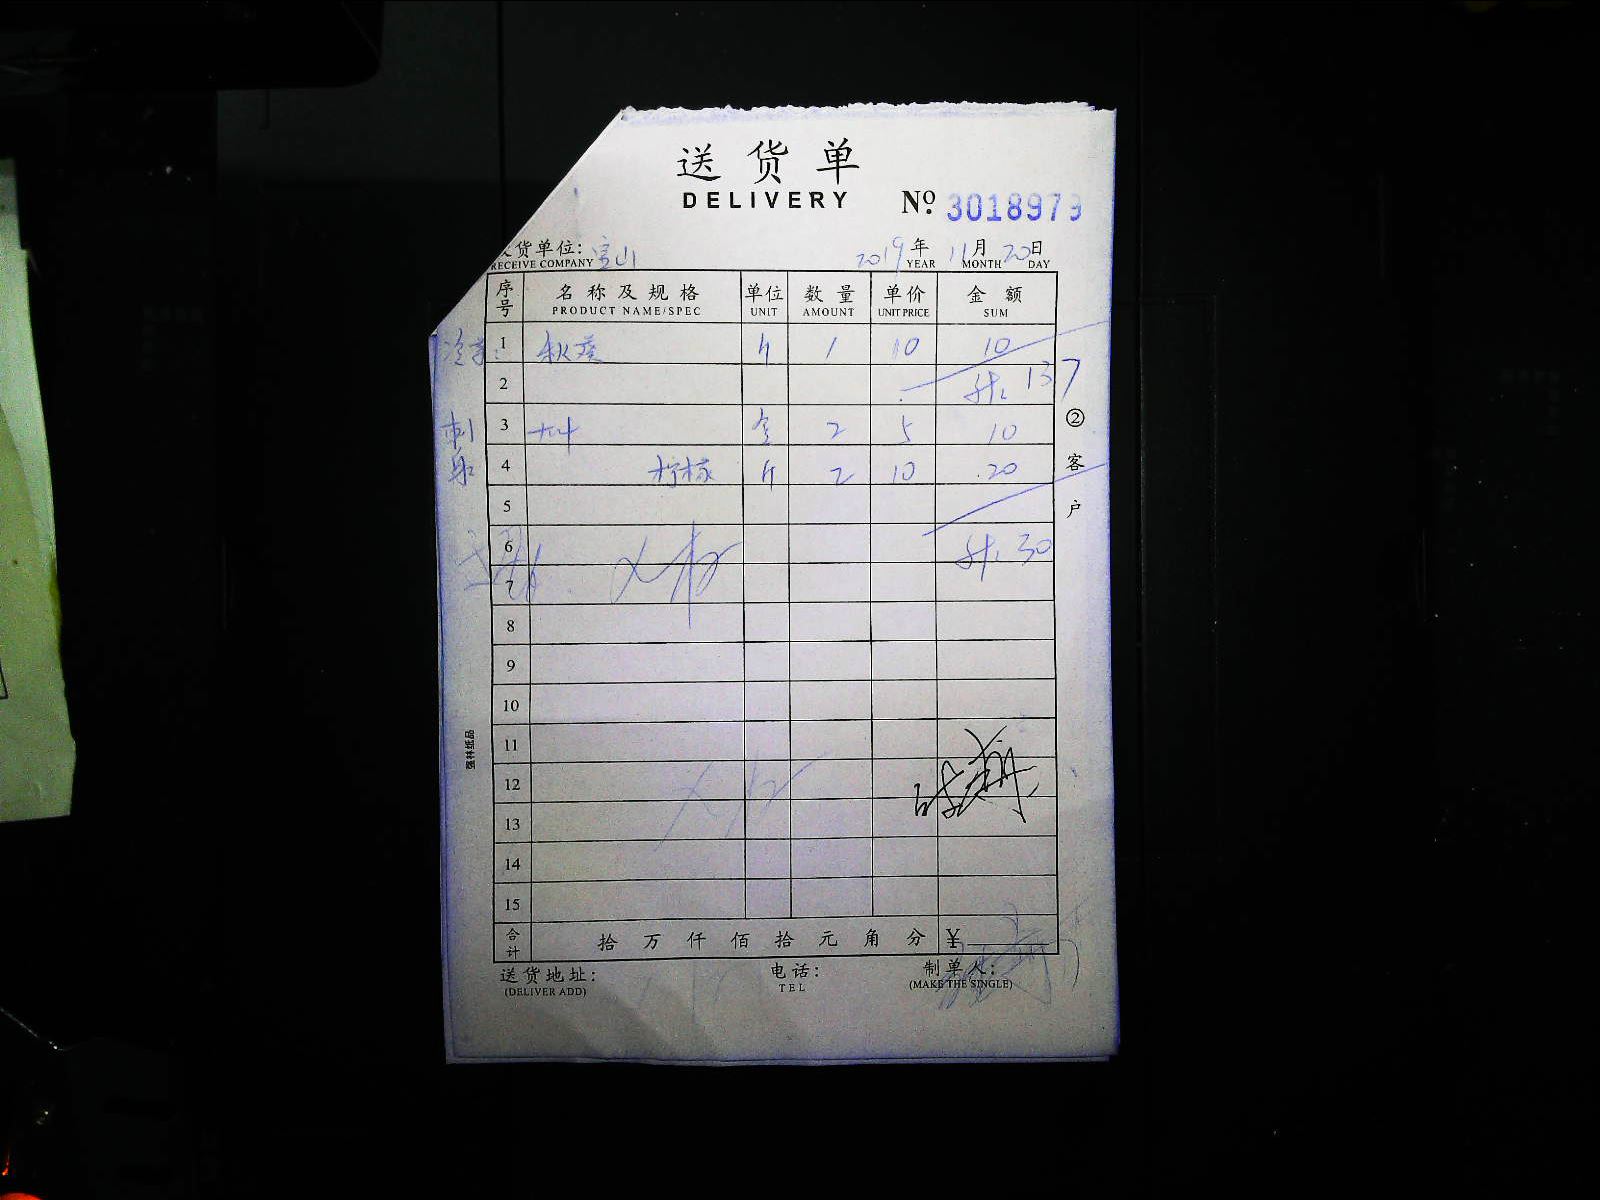 送货单
DELIVERY
Nº 3018979
货单位: 宝山 2019年 11月 20日
RECEIVE COMPANY YEAR MONTH DAY
序号 名称及规格 单位 数量 单价 金额
PRODUCT NAME/SPEC UNIT AMOUNT UNIT PRICE SUM
1 秋葵 斤 1 10 10
2 计: 137
3 大叶 盒 2 5 10
刺身
4 柠檬 斤 2 10 20
5
6 计: 30
7
8
9
10
11
12
13
14
15
② 客户
强林纸品
合计 拾 万 仟 佰 拾 元 角 分 ¥
送货地址: 电话: 制单人:
(DELIVER ADD) TEL (MAKE THE SINGLE)